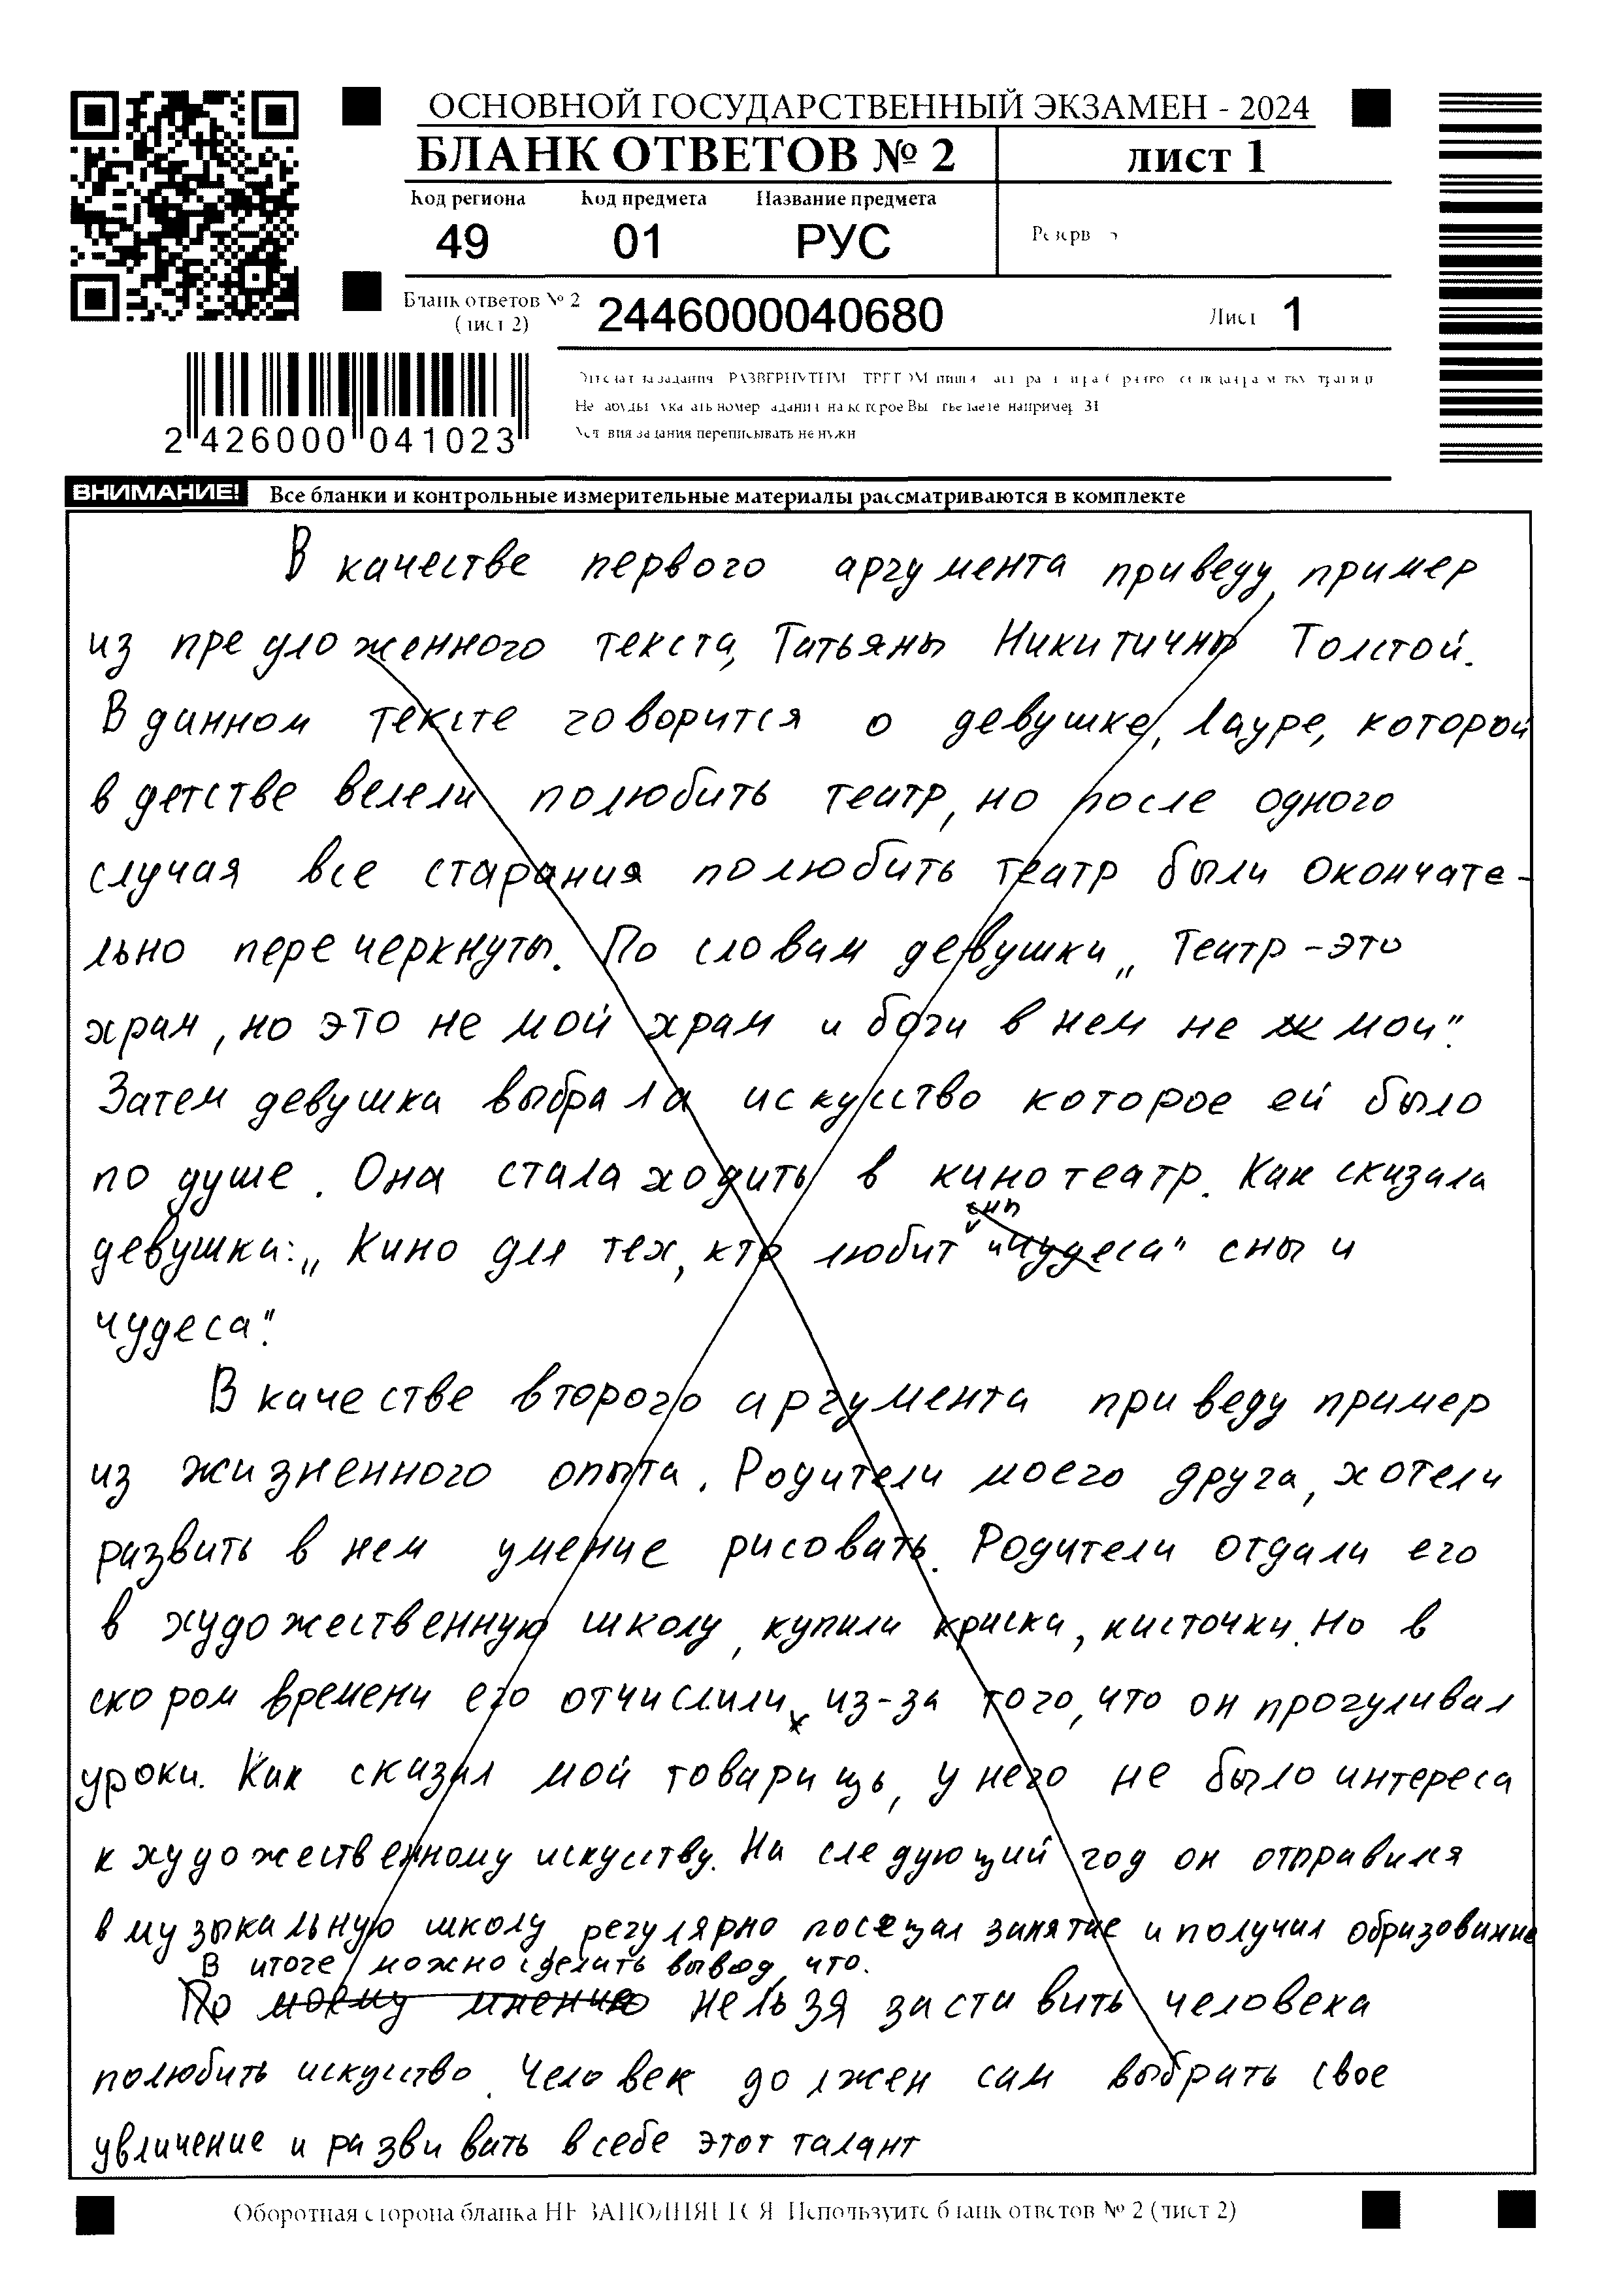 ОСНОВНОЙ ГОСУДАРСТВЕННЫЙ ЭКЗАМЕН - 2024
БЛАНК ОТВЕТОВ № 2 лист 1
Код региона Код предмета Название предмета
49 01 РУС
Резерв
Бланк ответов № 2
(лист 2)
2446000040680 Лист 1
2 426000 041023
ВНИМАНИЕ! Все бланки и контрольные измерительные материалы рассматриваются в комплекте
В качестве первого аргумента приведу пример
из предложенного текста, Татьяны Никитичны Толстой.
В данном тексте говорится о девушке, Лауре, которой
в детстве велели полюбить театр, но после одного
случая все старания полюбить театр были окончате-
льно перечеркнуты. По словам девушки „ Театр - это
храм, но это не мой храм и боги в нем не мои".
Затем девушка выбрала искусство которое ей было
по душе. Она стала ходить в кинотеатр. Как сказала
девушка: „ Кино для тех, кто любит "чудеса" сны и
чудеса".
В качестве второго аргумента приведу пример
из жизненного опыта. Родители моего друга, хотели
развить в нем умение рисовать. Родители отдали его
в художественную школу, купили краски, кисточки. Но в
скором времени его отчислили, из-за того, что он прогуливал
уроки. Как сказал мой товарищь, у него не было интереса
к художественному искусству. На следующий год он отправился
в музыкальную школу, регулярно посещал занятие и получил образование
В итоге можно сделать вывод, что.
По моему мнению нельзя заставить человека
полюбить искусство. Человек должен сам выбрать свое
увличение и развивать в себе этот талант
Оборотная сторона бланка НЕ ЗАПОЛНЯЕТСЯ. Используйте бланк ответов № 2 (лист 2)